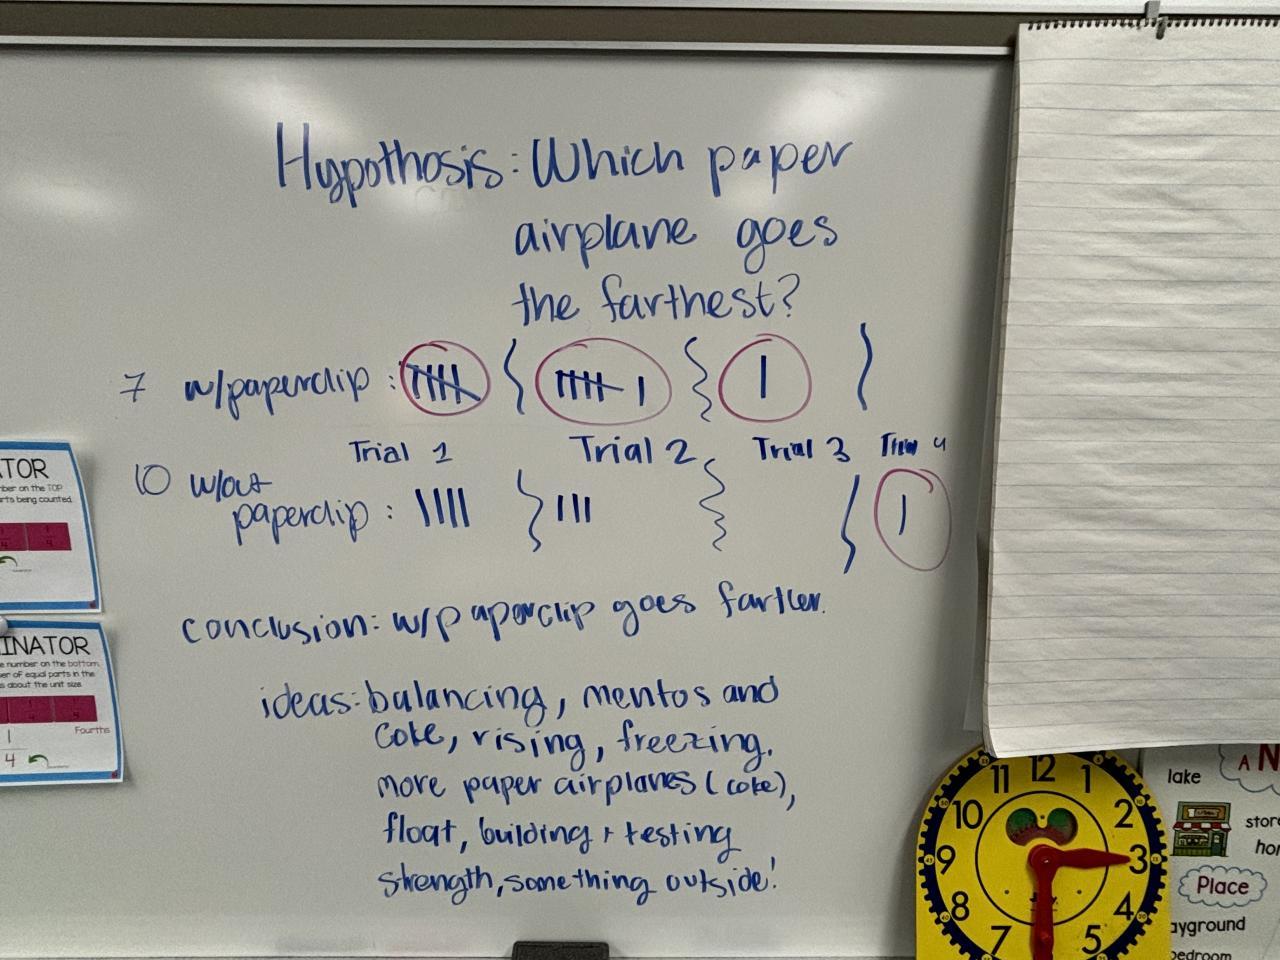 Hypothosis: Which paper
airplane goes
the farthest?
7 w/paperclip :
Trial 1 Trial 2 Trial 3
10 w/out
paperclip :
conclusion: w/paperclip goes farther.
ideas: balancing, mentos and
coke, rising, freezing.
more paper airplanes (coke),
float, building + testing
strength, something outside!
TOR
ber on the TOP
rts being counted.
1
4
INATOR
e number on the bottom
er of equal parts in the
s about the unit size.
Fourths
1
4
11 12 1
10 2
9 3
8 4
7 5
lake
A N
stor
hor
Place
ayground
bedroom